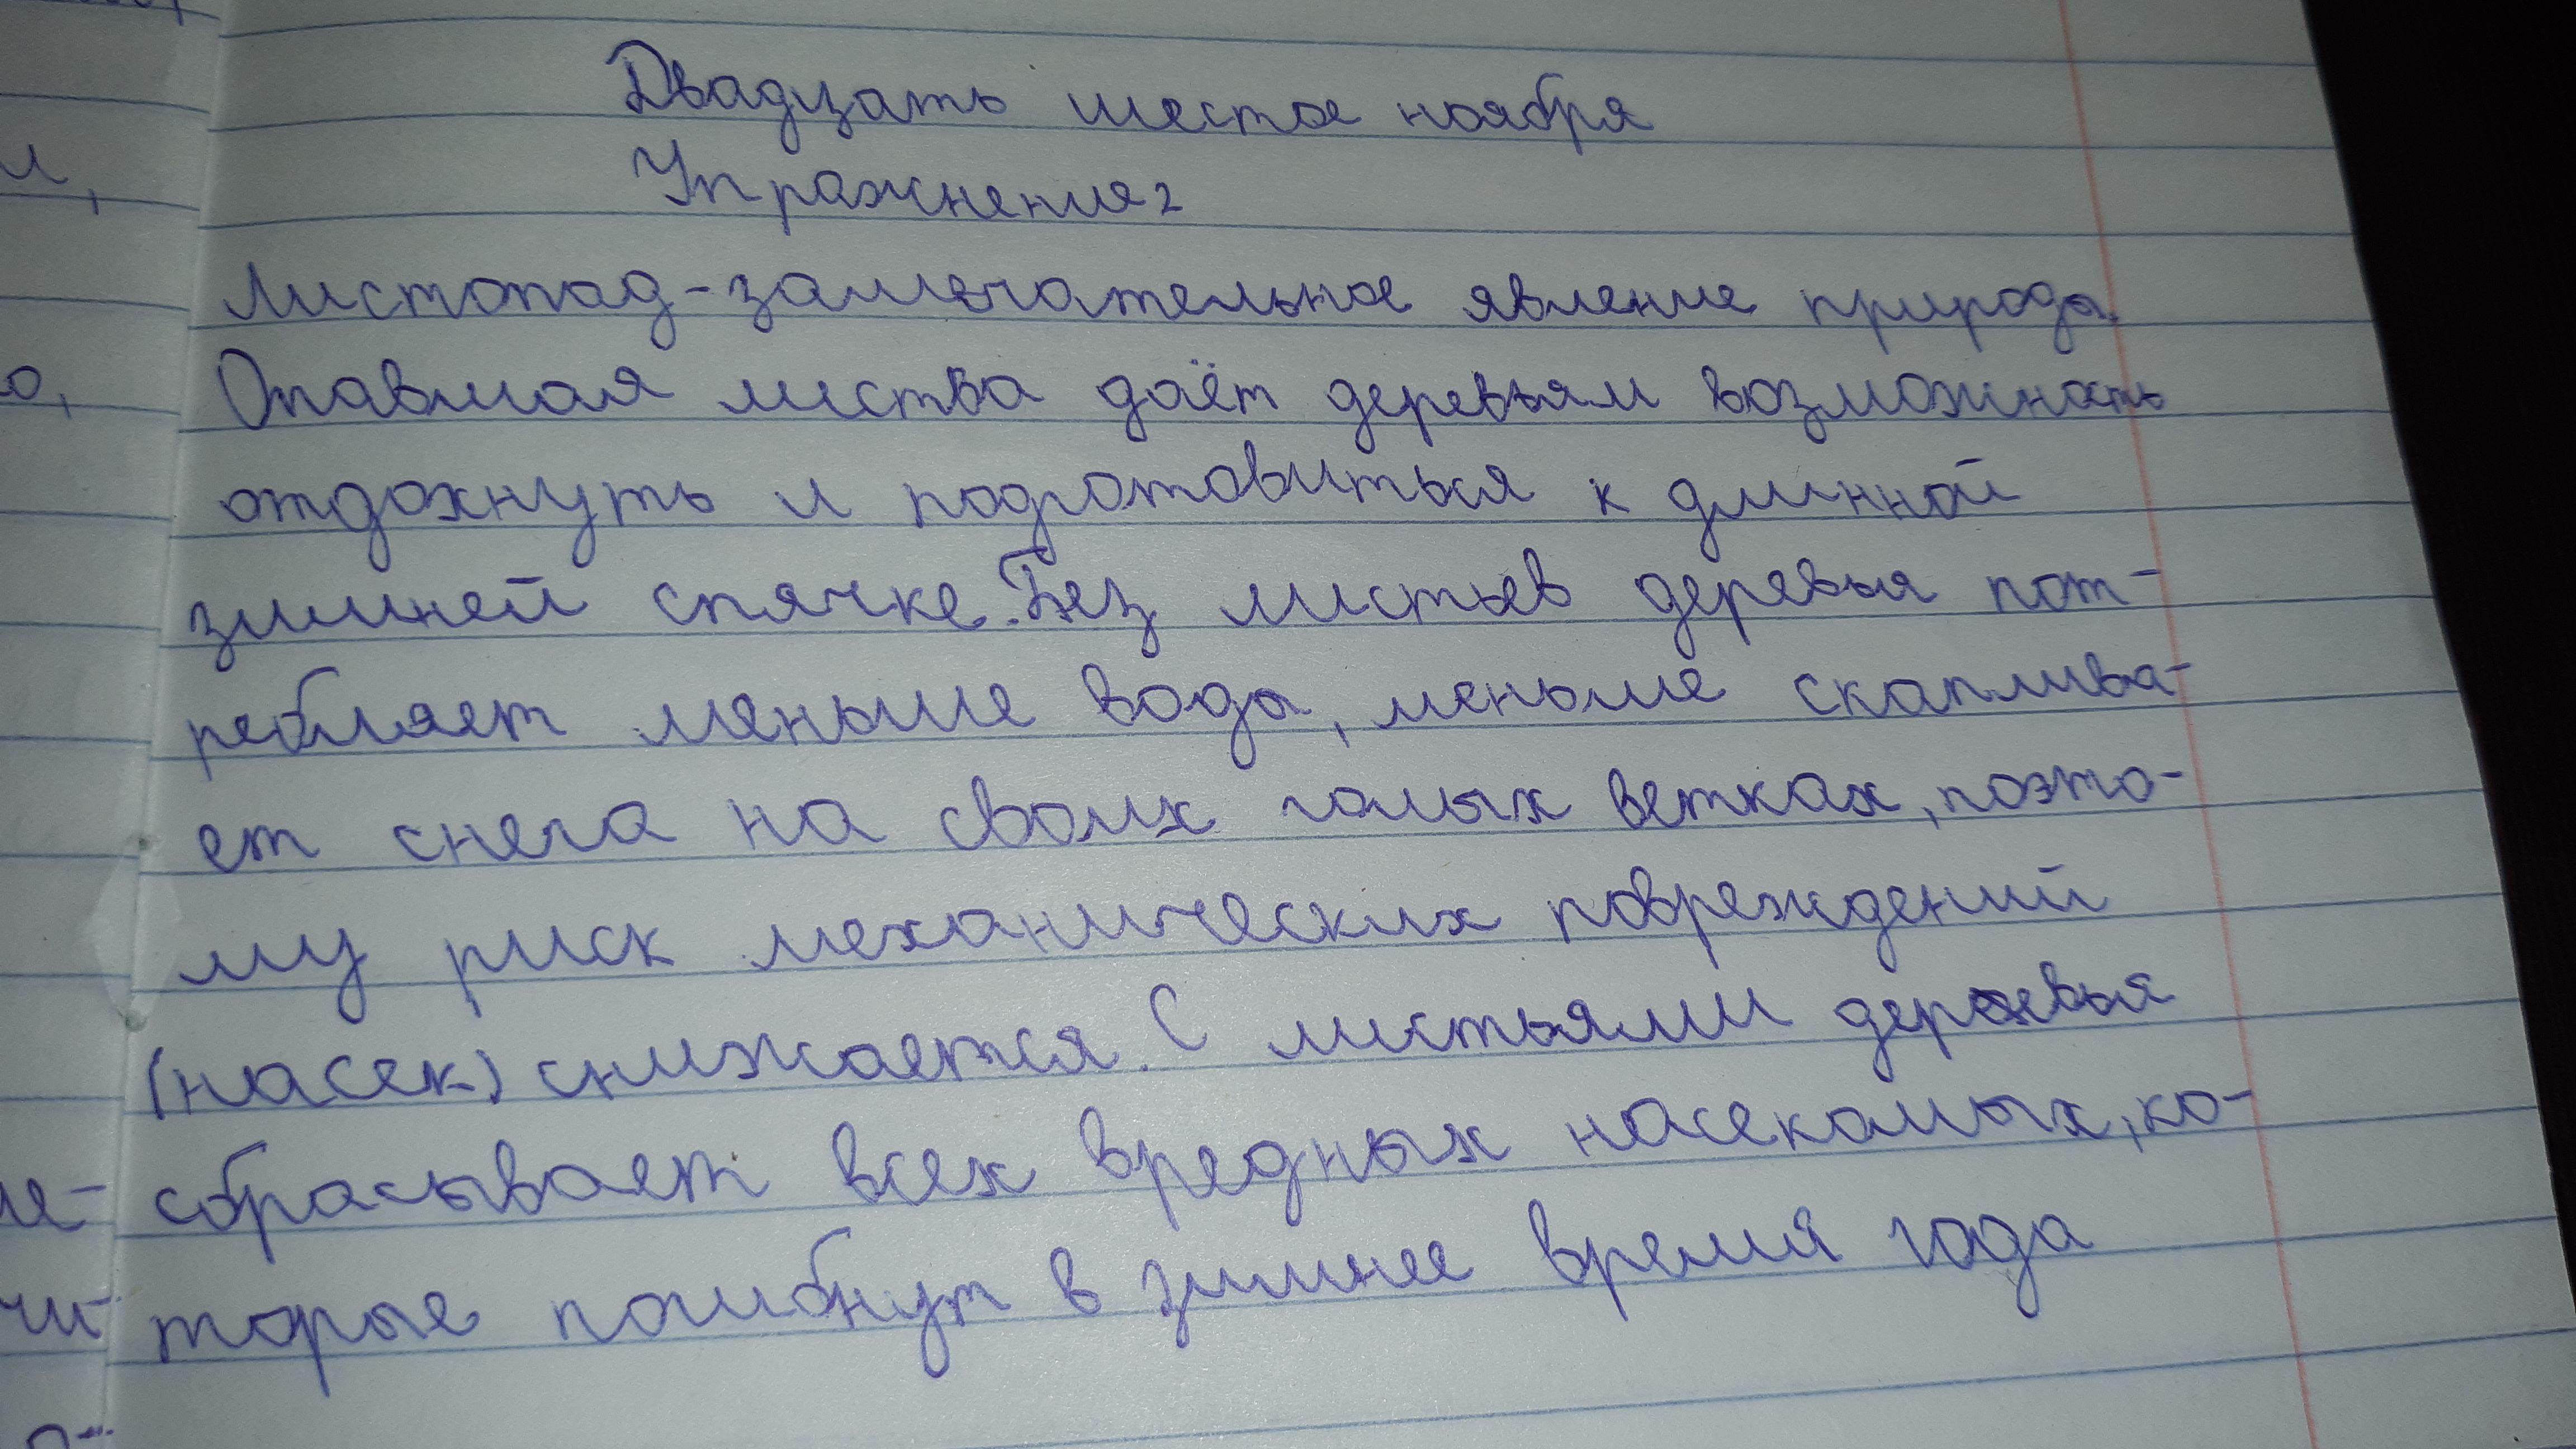 Двадцать шестое ноября
Упражнения 2
Листопад-замечательное явление природы.
Опавшая листва даёт деревьям возможность
отдохнуть и подготовиться к длинной
зимней спячке. Без листьев деревья пот-
ребляет меньше воды, меньше скаплива-
ет снега на своих голых ветках, поэто-
му риск механических повреждений
(насек) снижается. С листьями деревья
сбрасывает всех вредных насекомых, ко-
торые погибнут в зимнее время года